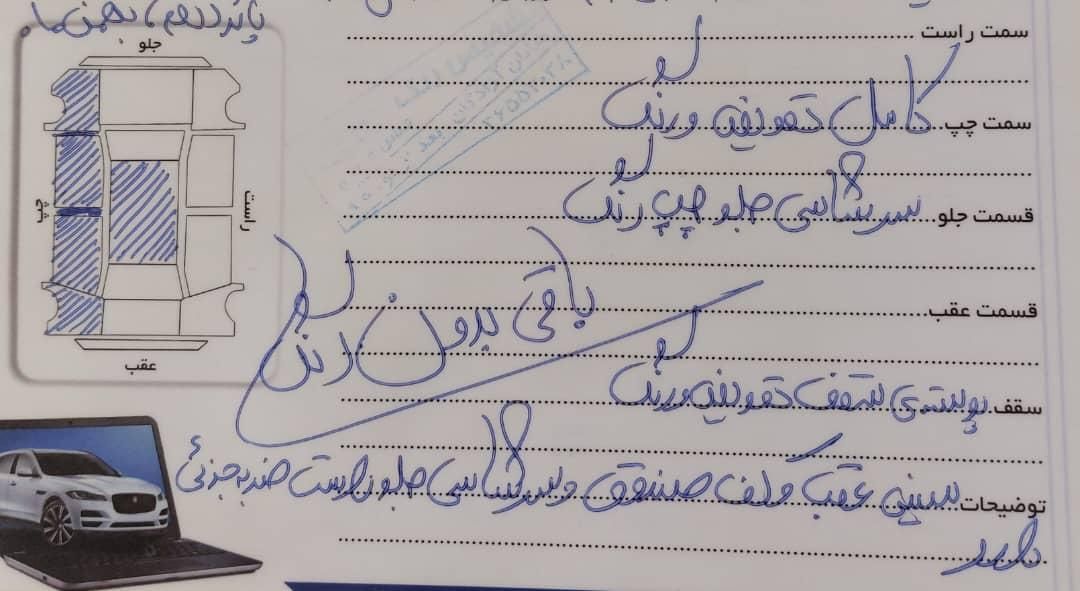 سمت راست
سمت چپ کامل تعویض و رنگ
قسمت جلو سرشاسی جلو چپ رنگ
قسمت عقب
باقی بدون رنگ
سقف پوسته‌ی سقف تعویض و رنگ
توضیحات سینی عقب و کف صندوق و سرشاسی جلو راست ضربه جزئی
دارد
جلو
راست
چپ
عقب